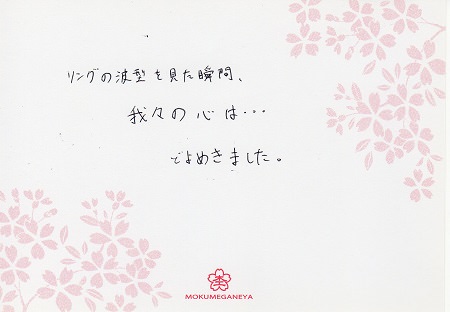 リングの波型を見た瞬間、
我々の心は・・・
でよめきました。
MOKUMEGANEYA